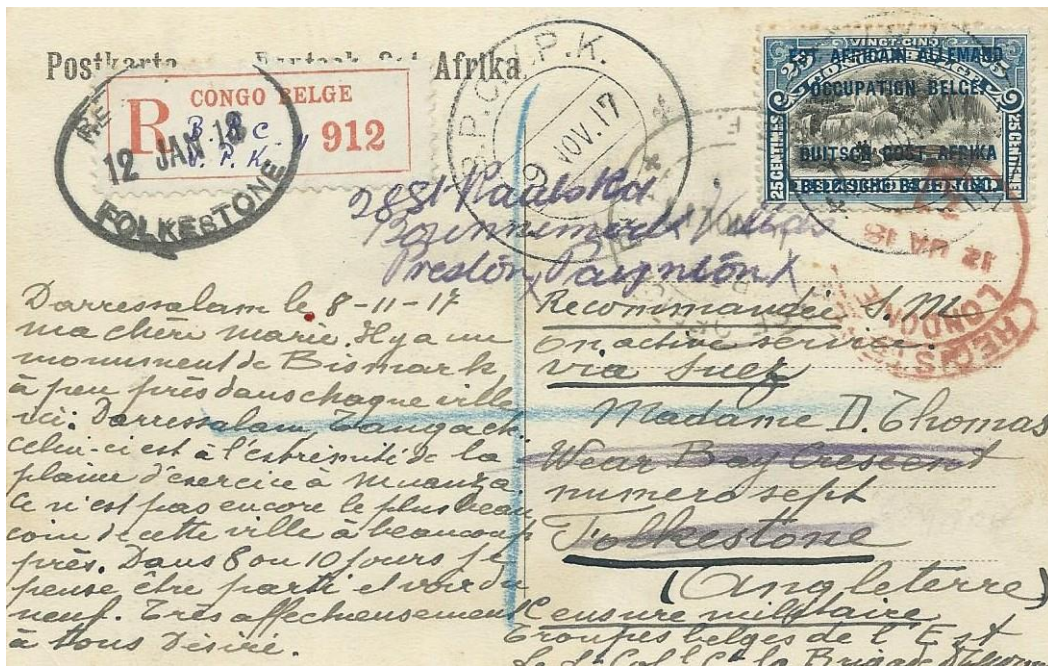 Postkarte Deutsch-Ost-Afrika
CONGO BELGE
R B.P.C.
V.P.K. 912
12 JAN 18
FOLKESTONE
B.P.C.V.P.K.
9 NOV. 17
VINGT-CINQ
EST AFRICAIN ALLEMAND
OCCUPATION BELGE
DUITSCH OOST AFRIKA
BELGISCHE BEZETTING
25 CENTIMES
REGISTERED
LONDON
12 JA 18
28 St Pauls Rd
Preston, Paignton
Darressalam le 8-11-17
ma chéri marie. Il y a un
monument de Bismark
à peu près dans chaque ville
ici: Darressalam, Tanga etc.
celui-ci est à l'extrémité de la
plaine d'exercice à Muanza.
Ce n'est pas encore le plus beau
coin de cette ville à beaucoup
près. Dans 8 ou 10 jours je
pense être parti et voir du
neuf. Très affectueusement
à tous Désiré.
Recommandée S.M.
on active service
via Suez
Madame D. Thomas
Wear Bay Crescent
numero sept
Folkestone
(Angleterre)
Censure militaire
Troupes belges de l'Est
Le Lt Col t Ct la Brigade